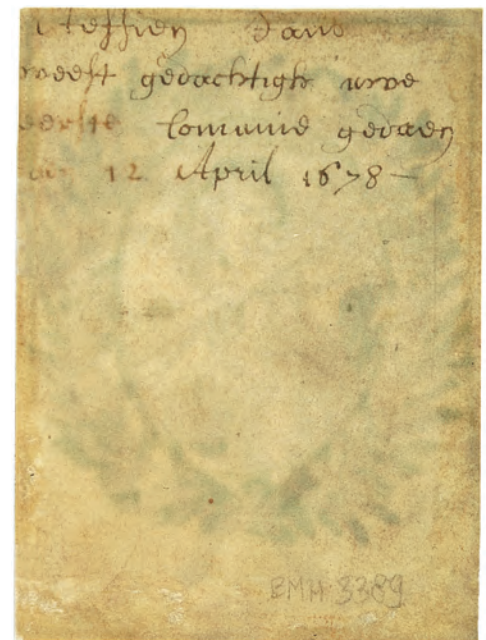 Steffien Jans
weest gedachtigh uwe
eerste comunie gedaen
den 12 April 1678 –
BMH 3389